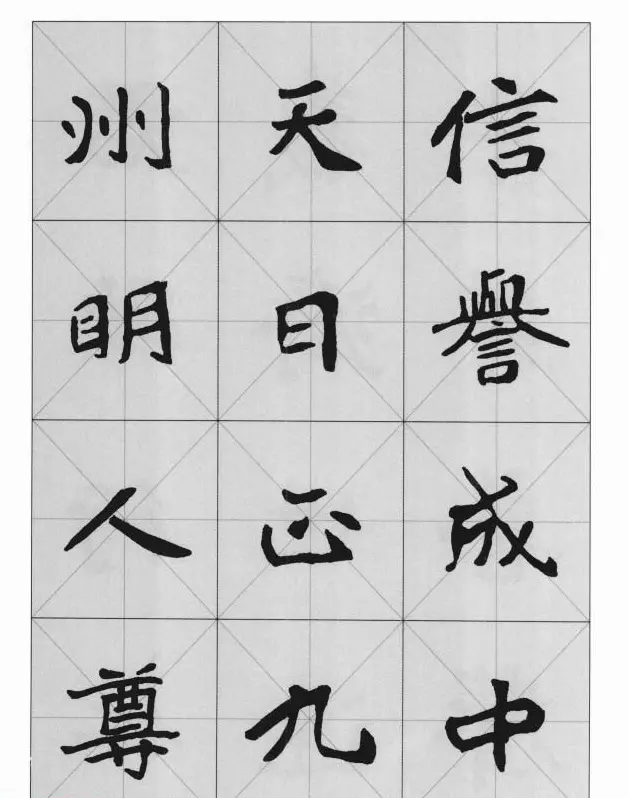 信譽成中
天日正九
州明人尊